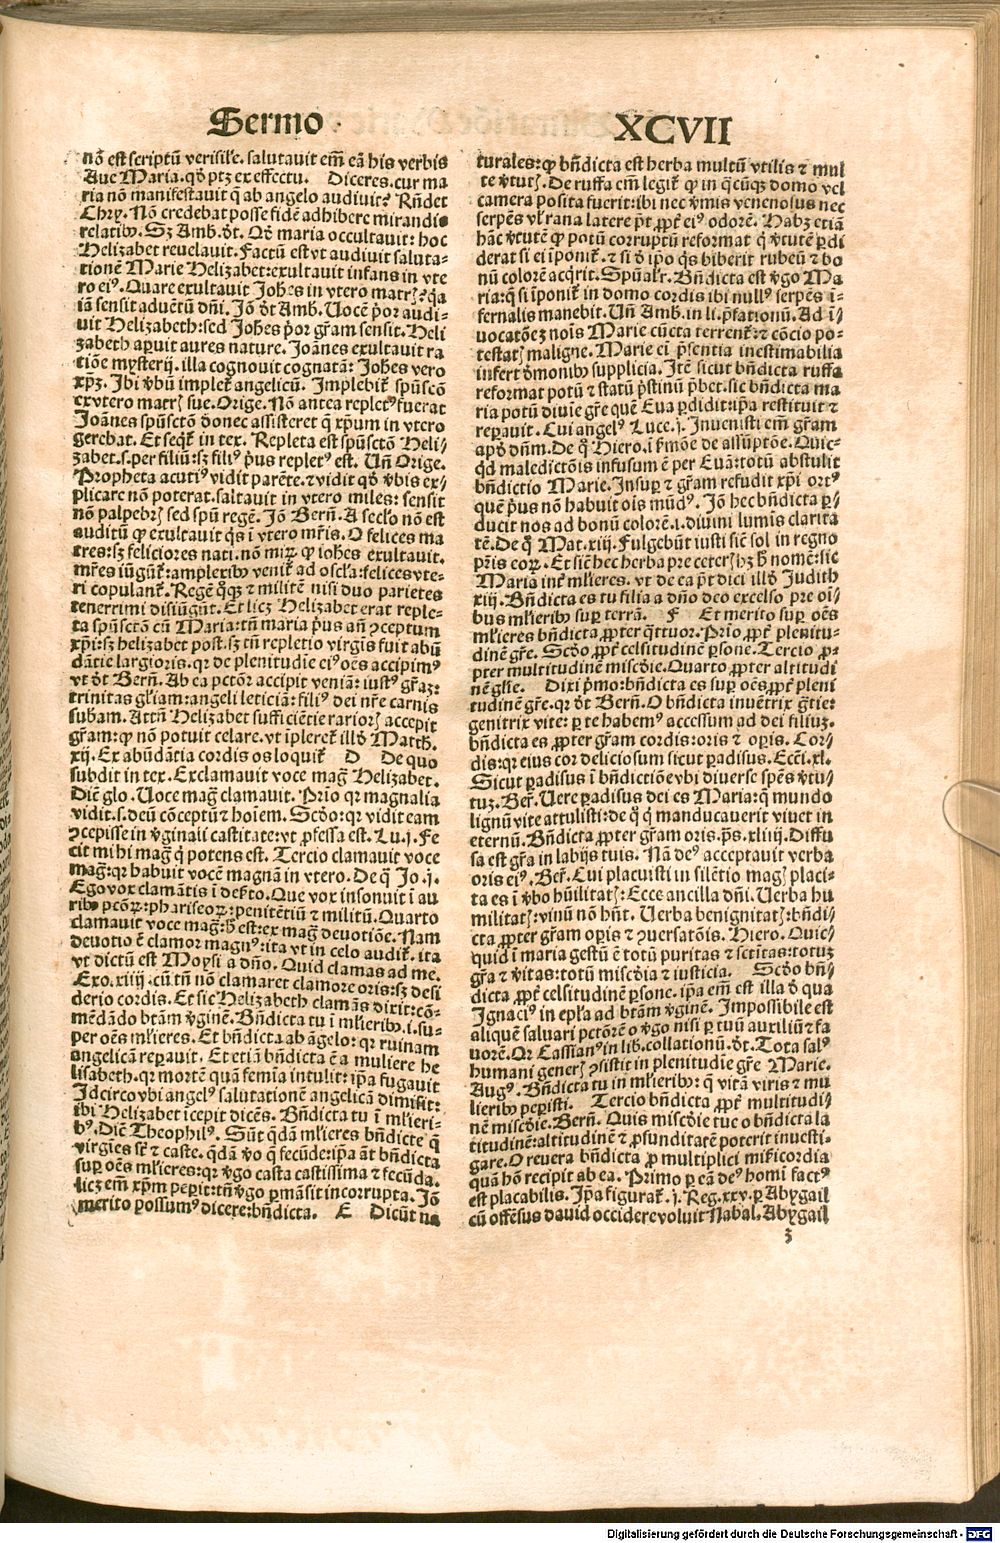 Sermo XCVII
nō est scriptū verisile. salutavit em̄ eā his verbis
Ave Maria. qđ ptꝫ ex effectu. Diceres. cur ma
ria nō manifestavit q̄ ab angelo audivit? Rn̄det
Chry. Nō credebat posse fidē adhibere mirandis
relatibꝰ. Sꝫ Amb. đt. Qđ maria occultavit: hoc
Helizabet revelavit. Factū est vt audivit saluta-
tionē Marie Helizabet: exultavit infans in vte
ro eiꝰ. Quare exultavit Joh̄es in vtero matrꝭ? q̄a
iā sensit adventū dn̄i. Jō đt Amb. Vocē p̄or audi-
vit Helizabeth: sed Joh̄es p̄or gr̄am sensit. Heli
zabeth aꝑuit aures nature. Joānes exultavit ra
tiōe mysterij. illa cognovit cognatā: Joh̄es vero
xp̄ꝫ. Ibi v̄bū implet᷑ angelicū. Implebit᷑ spūscō
ex vtero matrꝭ sue. Orige. Nō antea repletꝰ fuerat
Joānes spūsctō donec assisteret q̄ xp̄um in vtero
gerebat. Et seqt᷑ in tex. Repleta est spūsctō Heli/
zabet. s. per filiū: sꝫ filiꝰ p̄us repletꝰ est. Un̄ Orige.
Propheta acutiꝰ vidit parēte. ⁊ vidit qđ v̄bis ex/
plicare nō poterat. saltavit in vtero miles: sensit
nō palpebrꝭ sed spū regē. Jō Bern̄. A sec̄lo nō est
auditū ꝙ exultavit q̄s ī vtero mr̄is. O felices ma
tres: sꝫ feliciores nati. nō miꝝ ꝙ ioh̄es exultavit.
mr̄es iūgūt᷑: amplexibꝰ venit᷑ ad oscl̄a: felices vte-
ri copulant᷑. Regē q̄ꝫ ⁊ militē nisi duo parietes
tenerrimi disiūgūt. Et licꝫ Helizabet erat reple-
ta spūsctō cū Maria: tn̄ maria p̄us an̄ ꝯceptum
xp̄i: sꝫ helizabet post. sꝫ tn̄ repletio virgis fuit abū
dātie largioris. qr de plenitudīe eiꝰ oēs accipimꝰ
vt đt Bern̄. Ab ea pctōr accipit veniā: iustꝰ gr̄aꝫ:
trinitas gl̄iam: angeli leticiā: filiꝰ dei nr̄e carnis
subam. Attn̄ Helizabet sufficiētie rariorꝭ accepit
gr̄am: q̄ nō potuit celare. vt īpleret᷑ illđ Matth̄.
xij. Ex abūdātia cordis os loquit᷑ D De quo
subdit in tex. Exclamavit voce maḡ Helizabet.
Diē glo. Voce maḡ clamavit. Prīo qr magnalia
vidit. s. deū cōceptū ⁊ hoīem. Scđo: qr vidit eam
ꝯcepisse in v̄ginali castitate: vt ꝓfessa est. Lu. j. Fe
cit mihi maḡ q̄ potens est. Tercio clamavit voce
maḡ: qr habuit vocē magnā in vtero. De q̄ Jo. j.
Ego vox clamātis ī dek̄to. Que vox insonuit ī au
ribꝰ pctōꝝ: phariseoꝝ: penitētiū ⁊ militū. Quarto
clamavit voce maḡ: h̄ est: ex maḡ devotiōe. Nam
devotio ē clamor magnꝰ: ita vt in celo audit᷑. ita
vt dictū est Moysi a dn̄o. Quid clamas ad me.
Exo. xiiij. cū tn̄ nō clamaret clamore oris: sꝫ desi
derio cordis. Et sic Helizabeth clamās dixit: cō-
mēdādo btām v̄ginē. Bn̄dicta tu ī ml̄ieribꝰ. i. su-
per oēs ml̄ieres. Et bn̄dicta ab āgelo: qr ruinam
angelicā reꝑavit. Et etiā bn̄dicta ē a muliere he
lisabeth. qr mortē quā femīa intulit: ip̄a fugavit
Idcirco vbi angelꝰ salutationē angelicā dimisit:
ibi Helizabet īcepit dicēs. Bn̄dicta tu ī ml̄ieri-
bꝰ. Diē Theophilꝰ. Sūt q̄dā ml̄ieres bn̄dicte q̄
virgies st̄ ⁊ caste. q̄dā v̄o q̄ fecūde: ip̄a āt bn̄dicta
suꝑ oēs ml̄ieres: qr v̄go casta castissima ⁊ fecūda.
licꝫ em̄ xp̄m peꝑit: tn̄ v̄go ꝑmāsit incorrupta. Jō
merito possumꝰ dicere: bn̄dicta. E Dicūt na
turales: ꝙ bn̄dicta est herba multū vtilis ⁊ mul
te v̄tutꝭ. De ruffa em̄ legit᷑ ꝙ in q̄cūqꝫ domo vel
camera posita fuerit: ibi nec v̄mis venenosus nec
serpēs vl̄ rana latere p̄t ꝓpt̄ eiꝰ odorē. Habꝫ etiā
hāc v̄tutē ꝙ potū corruptū reformat q̄ v̄tutē ꝑdi
derat si ei īponit᷑. ⁊ si đ ip̄o q̄s biberit rubeū ⁊ bo
nū colorē acq̄rit. Spūalr̄. Bn̄dicta est v̄go Ma
ria: q̄ si īponit᷑ in domo cordis ibi nullꝰ serpēs ī-
fernalis manebit. Un̄ Amb. in li. p̄fationū. Ad ī/
vocatōeꝫ noīs Marie cūcta terrent᷑: ⁊ cōcio po-
testatꝭ maligne. Marie ei p̄sentia inestimabilia
infert đmonibꝰ supplicia. Itē sicut bn̄dicta ruffa
reformat potū ⁊ statū p̄stinū p̄bet. sic bn̄dicta ma
ria potū divīe gr̄e quē Eva ꝑdidit: ip̄a restituit ⁊
reꝑavit. Cui angelꝰ Luce. j. Invenisti em̄ gr̄am
apđ dn̄m. De q̄ Hiero. ī s̄mōe de assūptōe. Quic-
qđ maledictōis infusum ē per Evā: totū abstulit
bn̄dictio Marie. Insuꝑ ⁊ gr̄am refudit xp̄i ortꝰ
quē p̄us nō habuit oīs mūdꝰ. Jō hec bn̄dicta ꝑ/
ducit nos ad bonū colorē. i. divini lumīs clarita
tē. De q̄ Mat. xiij. Fulgebūt iusti siē sol in regno
pr̄is eoꝝ. Et siē hec herba pre ceterꝭ hꝫ h̄ nomē: sic
Maria int᷑ ml̄ieres. vt de ea p̄t dici illđ Judith
xiij. Bn̄dicta es tu filia a dn̄o deo excelso pre oī/
bus ml̄ieribꝰ suꝑ terrā. F Et merito suꝑ oēs
ml̄ieres bn̄dicta ꝓpter q̄ttuor. Prīo ꝓpt̄ plenitu-
dinē gr̄e. Scđo ꝓpt̄ celsitudinē ꝑsone. Tercio ꝓ-
pter multitudinē miscđie. Quarto ꝓpter altitudi
nē gl̄ie. Dixi p̄mo: bn̄dicta es suꝑ oēs ꝓpt̄ pleni
tudinē gr̄e. qr đt Bern̄. O bn̄dicta invētrix gr̄tie:
genitrix vite: ꝑ te habemꝰ accessum ad dei filiuꝫ.
bn̄dicta es ꝓpter gr̄am cordis: oris ⁊ oꝑis. Cor-
dis: qr eius cor deliciosum sicut ꝑadisus. Ecc̄i. xl.
Sicut ꝑadisus ī bn̄dictiōe vbi diverse spēs v̄tu-
tuꝫ. Ber̄. Vere ꝑadisus dei es Maria: q̄ mundo
lignū vite attulisti: de q̄ q̄ manducaverit vivet in
eternū. Bn̄dicta ꝓpter gr̄am oris. p̄s. xliiij. Diffu
sa est gr̄a in labijs tuis. Nā deꝰ acceptavit verba
oris eiꝰ. Ber̄. Cui placuisti in silētio maḡ placi-
ta es ī v̄bo hūilitatꝭ: Ecce ancilla dn̄i. Verba hu
militatꝭ: vinū nō hn̄t. Verba benignitatꝭ: bn̄di/
cta ꝓpter gr̄am oꝑis ⁊ ꝯversatōis. Hiero. Quic/
quid ī maria gestū ē totū puritas ⁊ sctītas: totuꝫ
gr̄a ⁊ v̄itas: totū miscđia ⁊ iusticia. Scđo bn̄/
dicta ꝓpt̄ celsitudinē ꝑsone. ip̄a em̄ est illa đ qua
Ignaciꝰ in epl̄a ad btām v̄ginē. Impossibile est
aliquē salvari pctōrē o v̄go nisi ꝑ tuū auxiliū ⁊ fa
vorē. Qr Cassianꝰ in lib. collationū. đt. Tota salꝰ
humani generꝭ ꝯsistit in plenitudīe gr̄e Marie.
Augꝰ. Bn̄dicta tu in ml̄ieribꝰ: q̄ vitā viris ⁊ mu
lieribꝰ peꝑisti. Tercio bn̄dicta ꝓpt̄ multitudi/
nē miscđie. Bern̄. Quis miscđie tue o bn̄dicta la
titudinē: altitudinē ⁊ ꝓfunditatē poterit investi-
gare. O revera bn̄dicta ꝓ multiplici mis̄icordia
quā hō recipit ab ea. Primo ꝑ eā deꝰ homi factꝰ
est placabilis. Ip̄a figurat᷑. j. Reg. xxv. ꝑ Abygail
cū offēsus david occidere voluit Nabal. Abygail
ꝫ
Digitalisierung gefördert durch die Deutsche Forschungsgemeinschaft - DFG